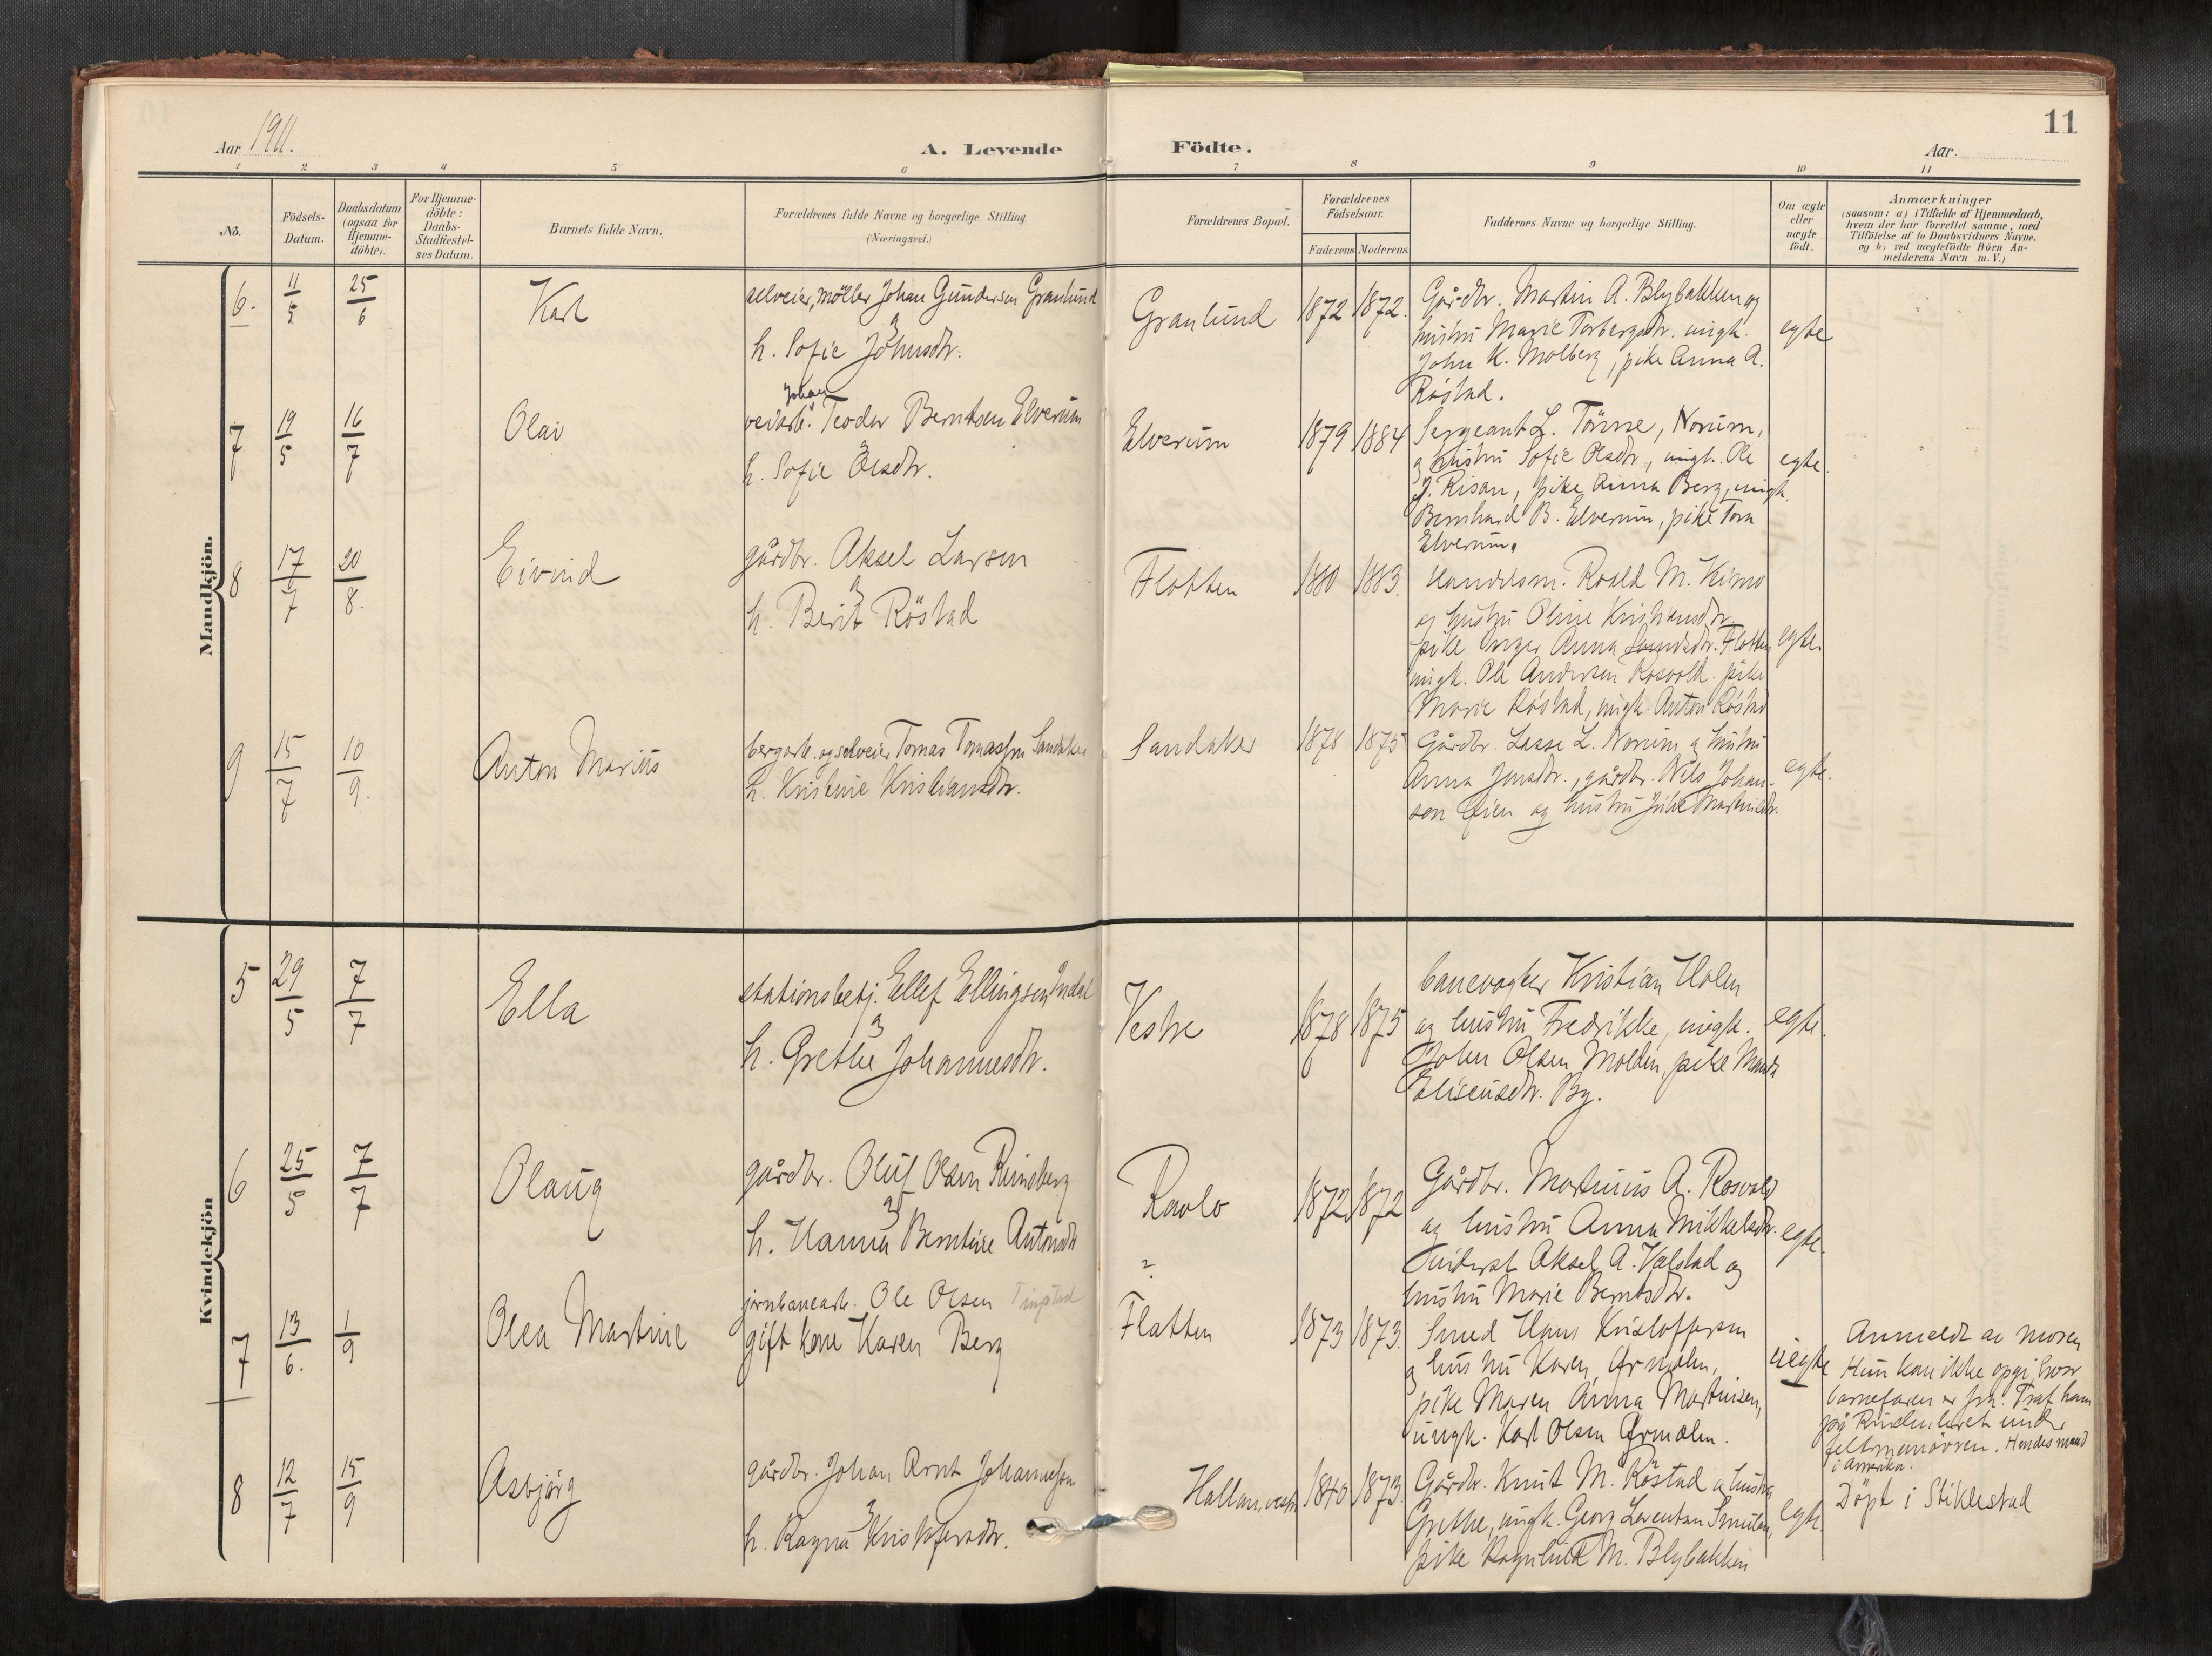 11
Aar 1911.
A. Levende
Födte.
Aar
1 2 3 4 5 6 7 8 9 10 11
No.
Födsels-
Datum.
Daabsdatum
(ogsaa for
Hjemme-
döbte).
For Hjemme-
döbte:
Daabs-
Stadfæstel-
ses Datum.
Barnets fulde Navn.
Forældrenes fulde Navne og borgerlige Stilling.
(Næringsvei.)
Forældrenes Bopæl.
Forældrenes
Födselsaar.
Faderens Moderens
Faddernes Navne og borgerlige Stilling.
Om ægte
eller
uægte
født.
Anmærkninger
(saasom: a) i Tilfælde af Hjemmedaab,
hvem der har forrettet samme, med
Tilföielse af to Daabsvidners Navne,
og b) ved uægtefödte Börn An-
melderens Navn m. V.)
Mandkjön.
6. 11/5 25/6 Karl
selveier, møller Johan Gundersen Granlund
h. Sofie Johnsdtr.
Granlund 1872 1872.
Gårdbr. Martin A. Blybakken og
hustru Marie Torbergsdtr. ungk.
John K. Molberg, pike Anna A.
Röstad.
egte
7 19/5 16/7 Olav
Johan
veiarb. Teodor Berntsen Elverum
h. Sofie Olsdtr.
Elverum 1879 1884
Sergeant L. Tönne, Norum,
og hustru Sofie Olsdtr., ungk. Ole
J. Risan, pike Anna Berg, ungk.
Bernhard B. Elverum, pike Tora
Elverum.
egte.
8 17/7 20/8. Eivind
gårdbr. Aksel Larsen
h. Berit Röstad
Flotten 1880 1883.
Handelsm. Roald M. Kimo
og hustru Oline Kristiansdtr.
pike Inger Anna Flotten
ungk. Ole Andersen Rosvold. pike
Marie Röstad, ungk. Anton Röstad
egte.
9 15/7 10/9. Anton Marius
bergarb. og selveier Tomas Tomassen Sandaker
h. Kristine Kristiansdtr.
Sandaker 1878 1875
Gårdbr. Lasse L. Norum og hustru
Anna Jensdtr., gårdbr. Nils Johan-
sen Øien og hustru Julie Martinsdtr.
egte.
Kvindekjön
5 29/5 7/7 Ella
stationsbetj. Ellef Ellingsen Indal
h. Grethe Johannesdtr.
Vestre 1878 1875
banevogter Kristian Holm
og hustru Fredrikke, ungk.
John Olsen Molden, pike Manda
Eliseusdtr. By.
egte.
6 25/5 7/7 Olaug
gårdbr. Oluf Olsen Rinsberg
h. Hanna Berntine Antonsdtr
Ravlo 1872 1872
Gårdbr. Martinus A. Rosvold
og hustru Anna Mikkelsdtr.
Inderst Aksel A. Valstad og
hustru Marie Berntsdtr.
egte.
7 13/6. 1/9 Olea Martine
jernbanearb. Ole Olsen Tingstad
gift kone Karen Berg
?
Flatten 1873 1873.
Smed Hans Kristoffersen
og hustru Karen Ørmælen,
pike Maren Anna Martinsen,
ungk. Karl Olsen Ørmælen.
uegte
Anmeldt av moren
Hun kan ikke opgi, hvor
barnefaren er fra. Traf ham
på Rindenleret under
feltmanövren. Hendes mand
i Amerika.
8 12/7 15/9 Asbjörg
gårdbr. Johan Arnt Johannessen
h. Ragna Kristofersdtr.
Halland, vestre 1840 1873.
Gårdbr. Knut M. Röstad og hustru
Grethe, ungk. Georg Leventsen
pike Ragnhild M. Blybakken
egte.
Döpt i Stiklestad